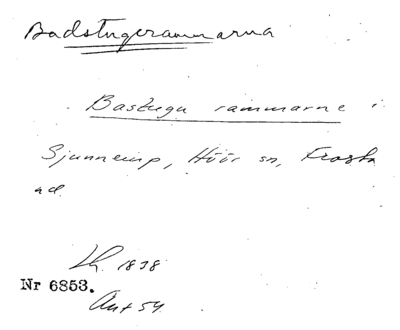 Badstugerammarna
Bastugu rammarne i
Sjunnerup, Höör sn, Frosta
hd.
Lh. 1838
Nr 6853.
Ant 54.